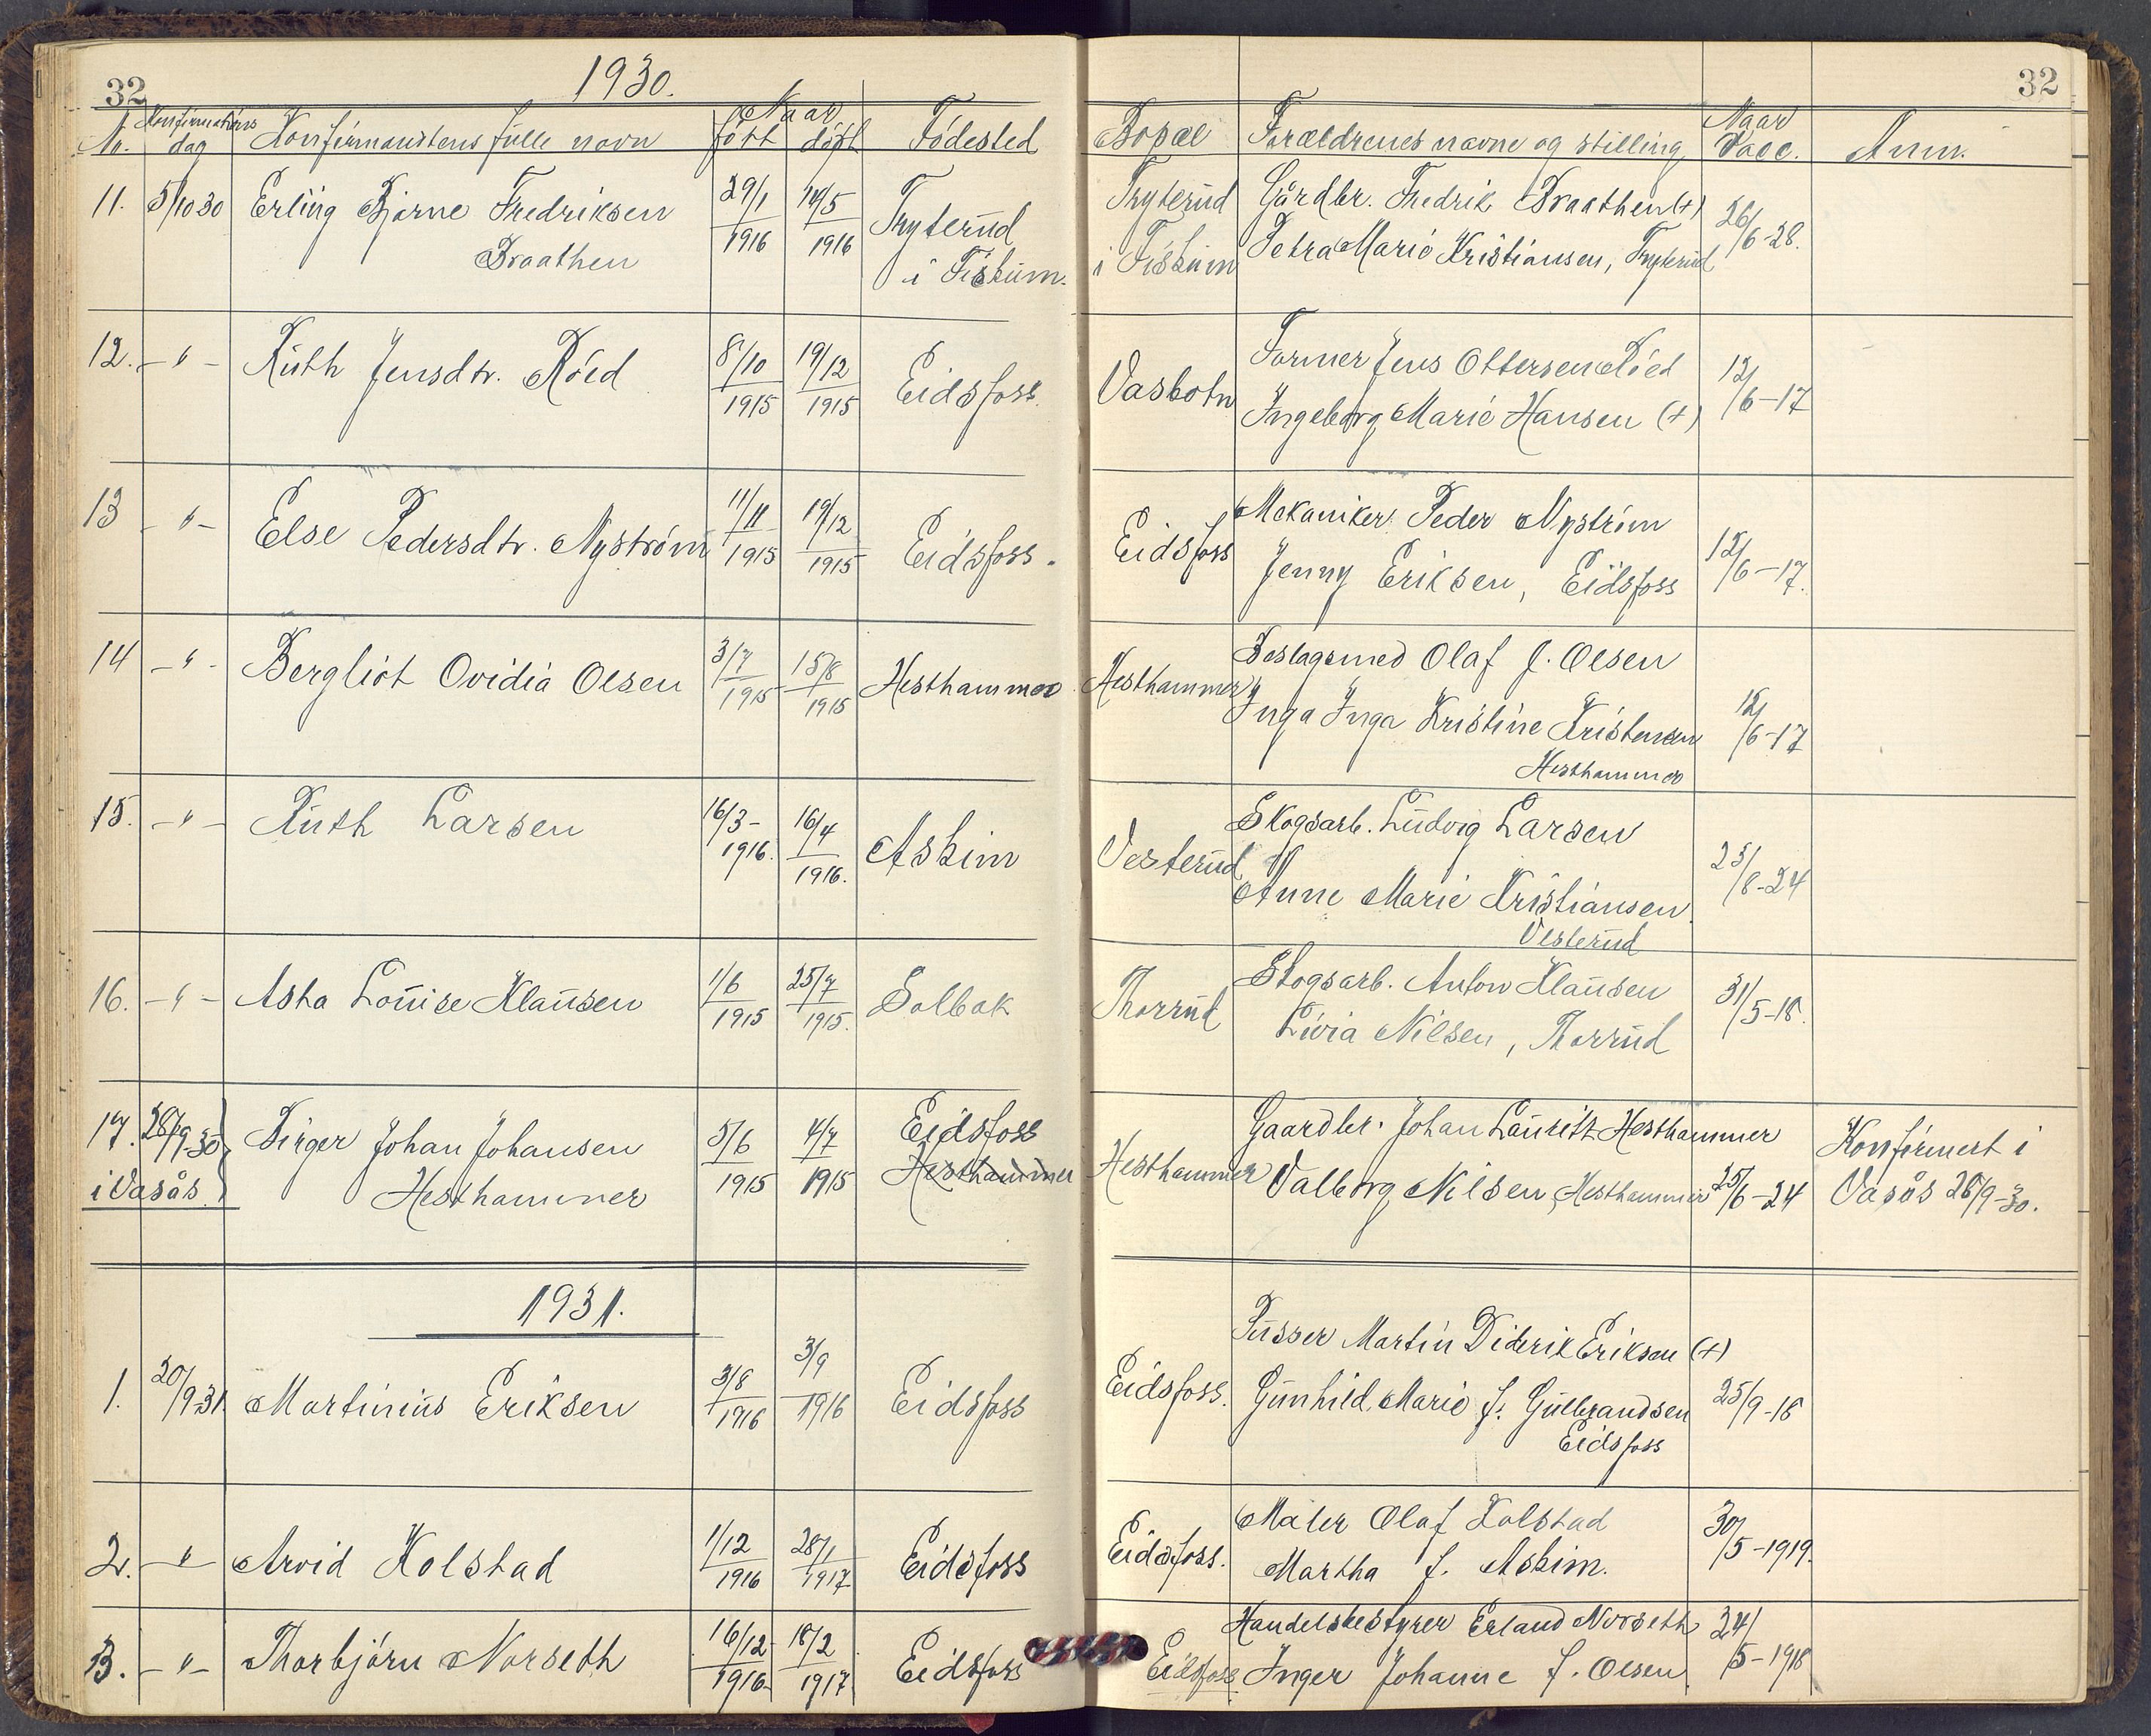 32
1930.
Nr. Konfirmations dag Konfirmantens fulle navn Naar født døpt Fødested
11. 5/10 30 Erling Bjarne Fredriksen 29/1 1916 14/5 1916 Tryterud
Braathen i Fiskum.
12. — " — Ruth Jensdtr. Röed 8/10 1915 19/12 1915 Eidsfoss.
13 — " — Else Pedersdtr. Nyström 11/11 1915 19/12 1915 Eidsfoss.
14 — " — Bergliot Ovidia Olsen 3/7 1915 15/8 1915 Hesthammer
15. — " — Ruth Larsen 16/3 - 1916. 16/4 1916. Askim
16. — " — Asta Louise Klausen 1/6 1915 25/7 1915. Solbak
17. 28/9-30 Birger Johan Johansen 5/6 1915 4/7 1915 Eidsfoss
i Vasås. Hesthammer Hesthammer
1931.
1. 20/9-31. Martinius Eriksen 3/8 1916 3/9 1916 Eidsfoss
2. — " — Arvid Kolstad 1/12 1916 28/1 1917 Eidsfoss
3. — " — Thorbjörn Norseth 16/12 1916 18/2 1917 Eidsfoss
32
Bopæl Forældrenes navne og stilling Naar Vacc. Anm.
Tryterud Gårdbr. Fredrik Braathen (+)
i Fiskum Petra Marie Kristiansen, Tryterud 26/6-28.
Vasbotn Former Jens Ottersen Röed
Ingeborg Marie Hansen (+) 12/6-17
Eidsfoss Mekaniker Peder Nyström
Jenny Eriksen, Eidsfoss 12/6-17.
Hesthammer Beslagsmed Olaf J. Olsen
Inga Inga Kristine Kristensen 12/6-17
Hesthammer
Vesterud Skogsarb. Ludvig Larsen
Anne Marie Kristiansen 23/8-24
Vesterud
Thorrud Skogsarb. Anton Klausen
Livia Nilsen, Thorrud 31/5-18.
Hesthammer Gaardbr. Johan Lauritz Hesthammer Konfirmert i
Valborg Nilsen, Hesthammer 25/6-24 Vasås 28/9-30.
Pusser Martin Diderik Eriksen (+)
Eidsfoss. Gunhild Marie f. Gulbrandsen 25/9-18
Eidsfoss
Eidsfoss. Maler Olaf Kolstad 30/5-1919.
Martha f. Askim.
Handelsbestyrer Erland Norseth 24/5-1918
Eidsfoss Inger Johanne f. Olsen